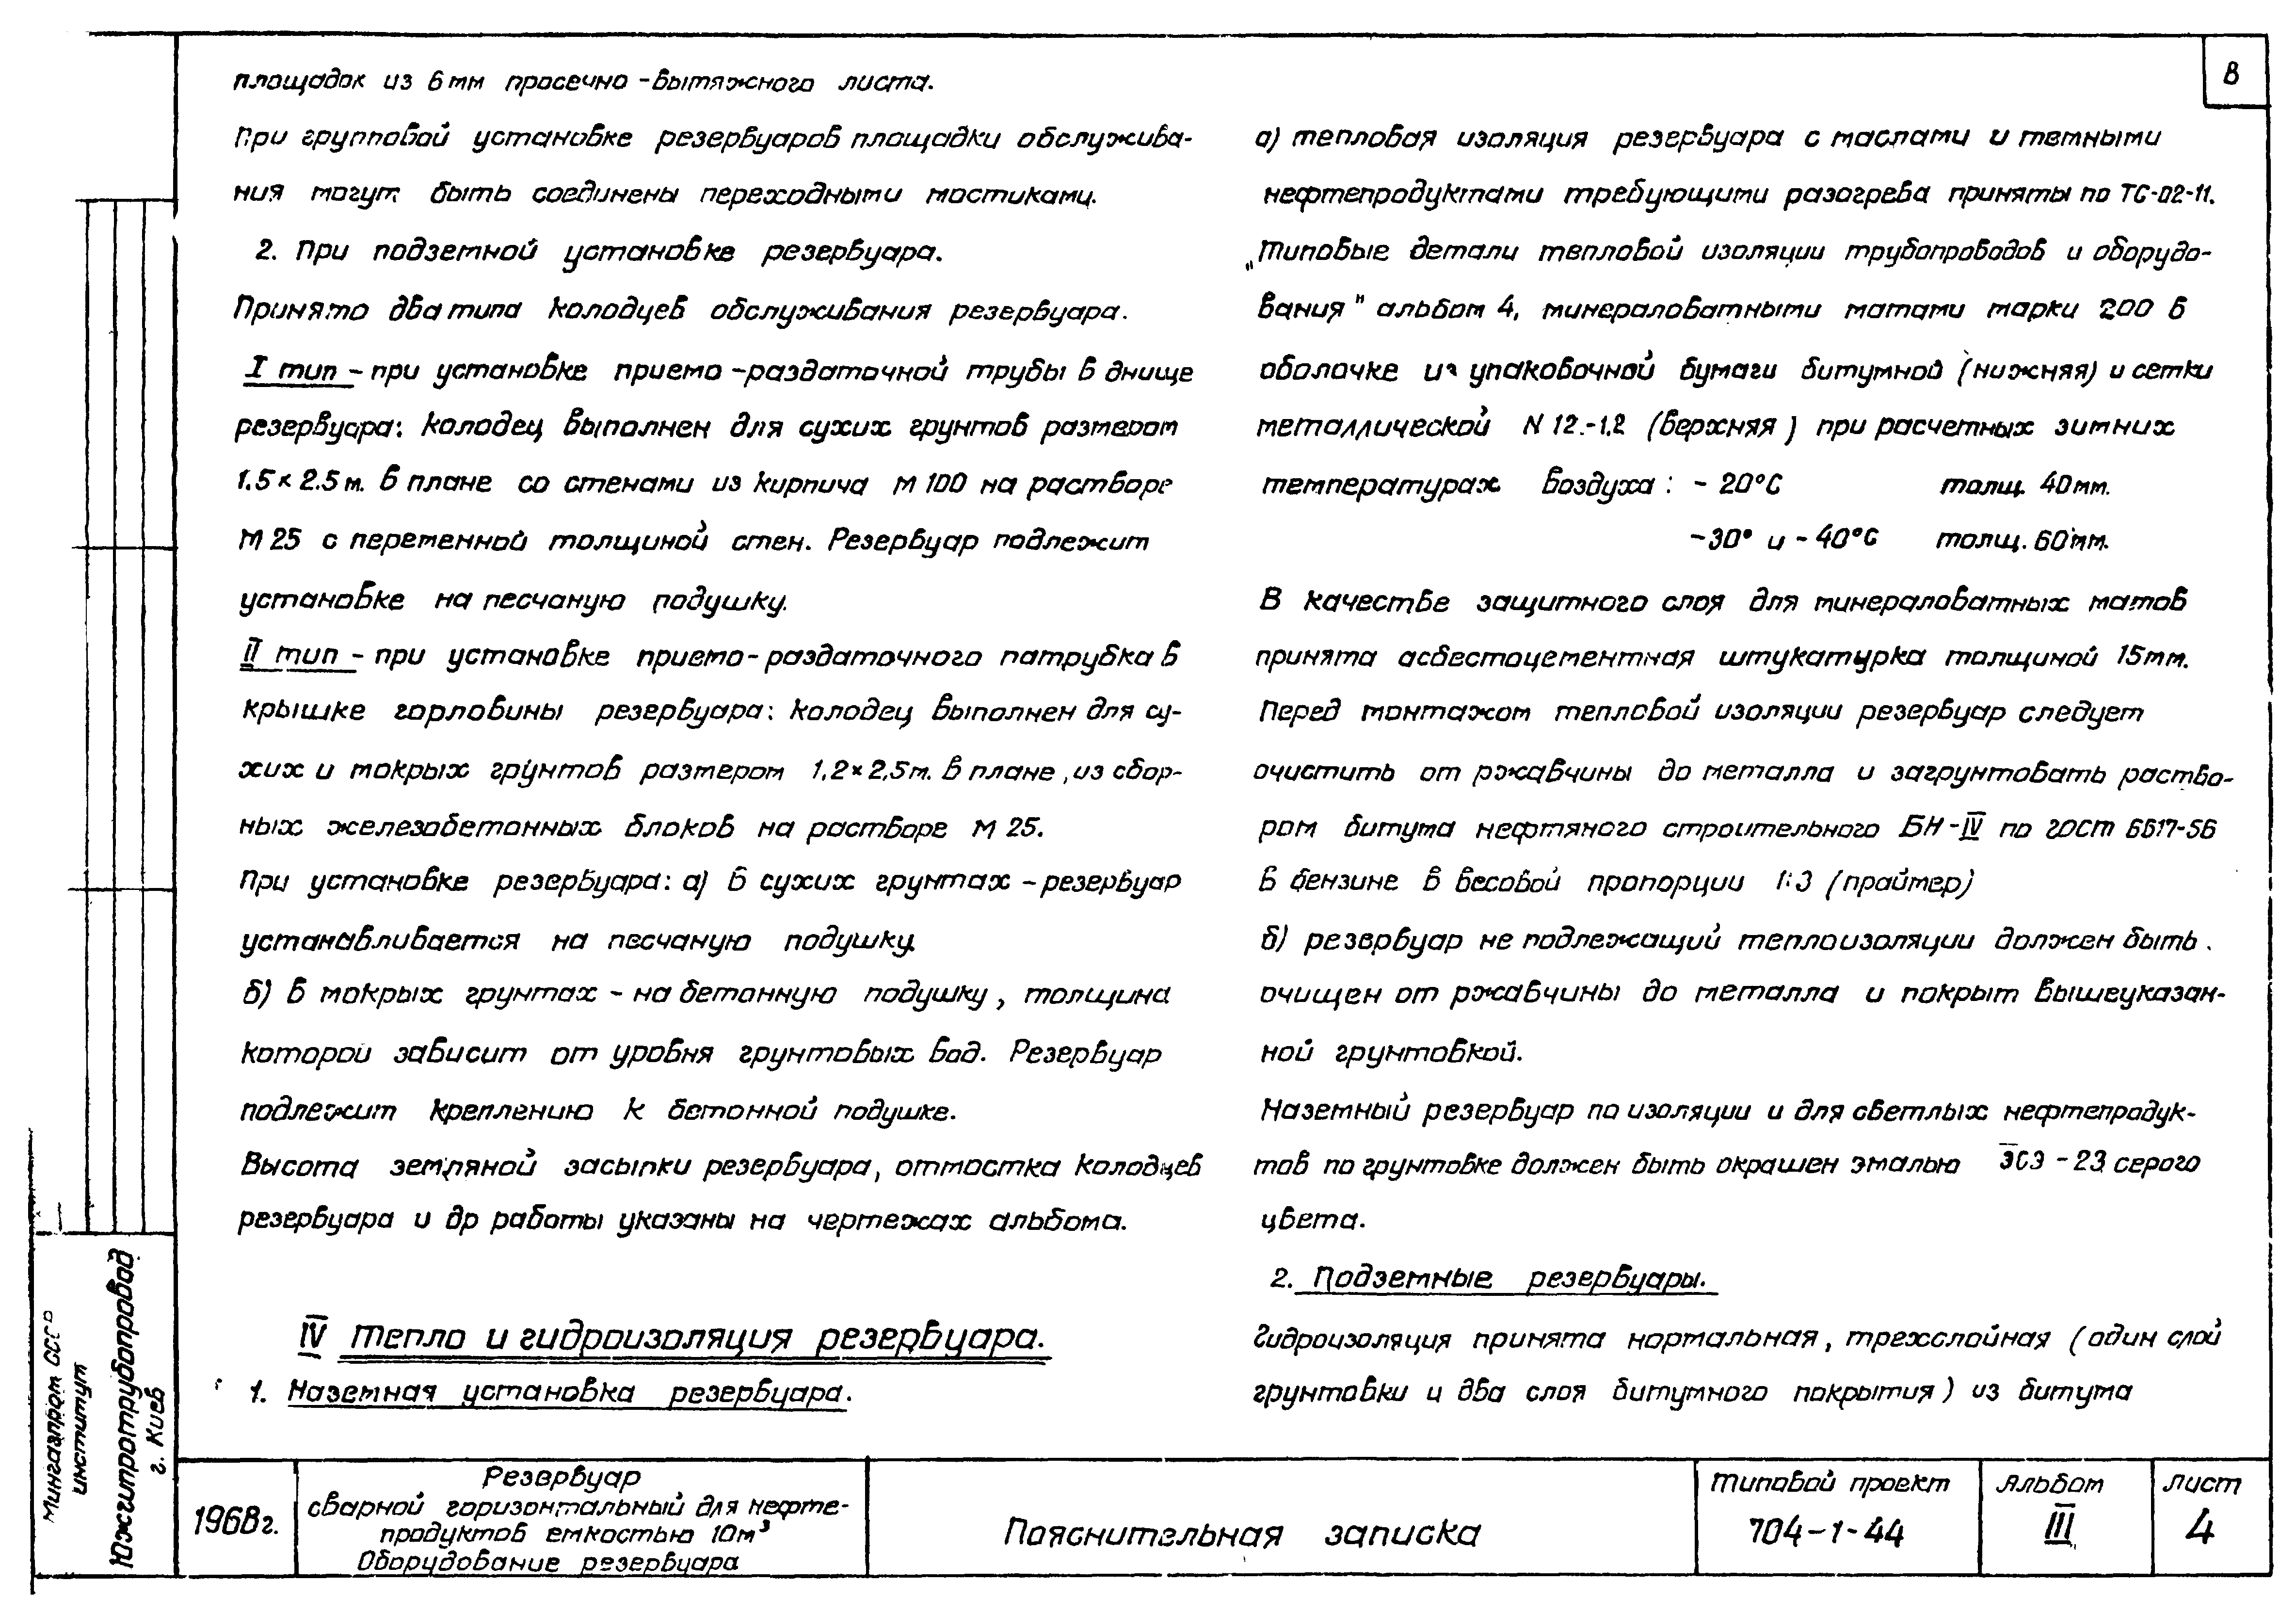 площадок из 6 мм просечно-вытяжного листа.
При групповой установке резервуаров площадки обслужива-
ния могут быть соединены переходными мостиками.
2. При подземной установке резервуара.
Принято два типа колодцев обслуживания резервуара.
I тип - при установке приемо-раздаточной трубы в днище
резервуара: колодец выполнен для сухих грунтов размером
1.5 × 2.5 м. в плане со стенами из кирпича М 100 на растворе
М 25 с переменной толщиной стен. Резервуар подлежит
установке на песчаную подушку.
II тип - при установке приемо-раздаточного патрубка в
крышке горловины резервуара: колодец выполнен для су-
хих и мокрых грунтов размером 1.2 × 2.5 м. в плане, из сбор-
ных железобетонных блоков на растворе М 25.
При установке резервуара: а) в сухих грунтах - резервуар
устанавливается на песчаную подушку.
б) в мокрых грунтах - на бетонную подушку, толщина
которой зависит от уровня грунтовых вод. Резервуар
подлежит креплению к бетонной подушке.
Высота земляной засыпки резервуара, отмостка колодцев
резервуара и др работы указаны на чертежах альбома.
IV Тепло и гидроизоляция резервуара.
1. Наземная установка резервуара.
8
а) тепловая изоляция резервуара с маслами и темными
нефтепродуктами требующими разогрева приняты по ТС-02-11.
"Типовые детали тепловой изоляции трубопроводов и оборудо-
вания" альбом 4, минераловатными матами марки 200 в
оболочке из упаковочной бумаги битумной (нижняя) и сетки
металлической N 12-1.2 (верхняя) при расчетных зимних
температурах воздуха: - 20°С толщ. 40 мм.
-30° и - 40°С толщ. 60 мм.
В качестве защитного слоя для минераловатных матов
принята асбестоцементная штукатурка толщиной 15 мм.
Перед монтажом тепловой изоляции резервуар следует
очистить от ржавчины до металла и загрунтовать раство-
ром битума нефтяного строительного БН-IV по ГОСТ 6617-56
в бензине в весовой пропорции 1:3 (праймер)
б) резервуар не подлежащий теплоизоляции должен быть
очищен от ржавчины до металла и покрыт вышеуказан-
ной грунтовкой.
Наземный резервуар по изоляции и для светлых нефтепродук-
тов по грунтовке должен быть окрашен эмалью ЭСЭ - 23 серого
цвета.
2. Подземные резервуары.
Гидроизоляция принята нормальная, трехслойная (один слой
грунтовки и два слоя битумного покрытия) из битума
Мингазпром СССР
институт
Южгипротрубопровод
г. Киев
1968г.
Резервуар
сварной горизонтальный для нефте-
продуктов емкостью 10м³
Оборудование резервуара
Пояснительная записка
Типовой проект
704-1-44
Альбом
III
Лист
4